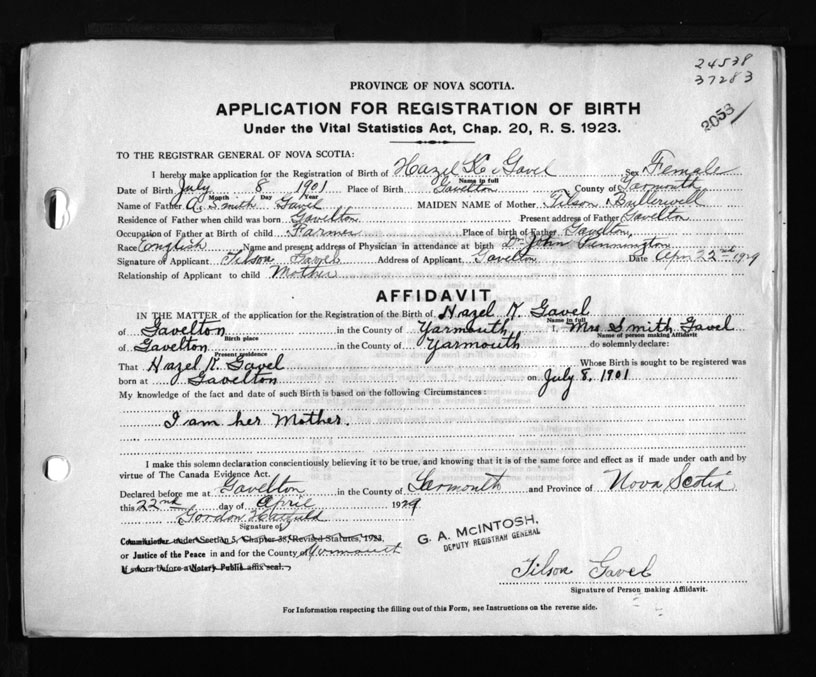 24538
37283
2053
PROVINCE OF NOVA SCOTIA.
APPLICATION FOR REGISTRATION OF BIRTH
Under the Vital Statistics Act, Chap. 20, R. S. 1923.
TO THE REGISTRAR GENERAL OF NOVA SCOTIA:
I hereby make application for the Registration of Birth of Hazel K. Gavel Sex Female
Name in full
Date of Birth July 8 1901 Place of Birth Gavelton County of Yarmouth
Month Day Year
Name of Father A. Smith Gavel MAIDEN NAME of Mother Tilson
Residence of Father when child was born Gavelton Present address of Father Gavelton
Occupation of Father at Birth of child Farmer Place of birth of Father Gavelton,
Race English Name and present address of Physician in attendance at birth Dr John
Signature of Applicant Tilson Gavel Address of Applicant Gavelton Date Apr 22nd 1929
Relationship of Applicant to child Mother
AFFIDAVIT
IN THE MATTER of the application for the Registration of the Birth of Hazel K. Gavel
Name in full
of Gavelton in the County of Yarmouth, I, Mrs Smith Gavel
Birth place Name of person making Affidavit
of Gavelton in the County of Yarmouth do solemnly declare:
Present residence
That Hazel K. Gavel Whose Birth is sought to be registered was
born at Gavelton on July 8, 1901
My knowledge of the fact and date of such Birth is based on the following Circumstances:
I am her Mother.
I make this solemn declaration conscientiously believing it to be true, and knowing that it is of the same force and effect as if made under oath and by
virtue of The Canada Evidence Act.
Declared before me at Gavelton in the County of Yarmouth and Province of Nova Scotia
this 22nd day of April 1929
Gordon Hatfield
Signature of
Commissioner under Section 5, Chapter 38, Revised Statutes, 1923,
or Justice of the Peace in and for the County of Yarmouth
If sworn before a Notary Public affix seal.
G. A. McINTOSH,
DEPUTY REGISTRAR GENERAL
Tilson Gavel
Signature of Person making Affidavit.
For Information respecting the filling out of this Form, see Instructions on the reverse side.